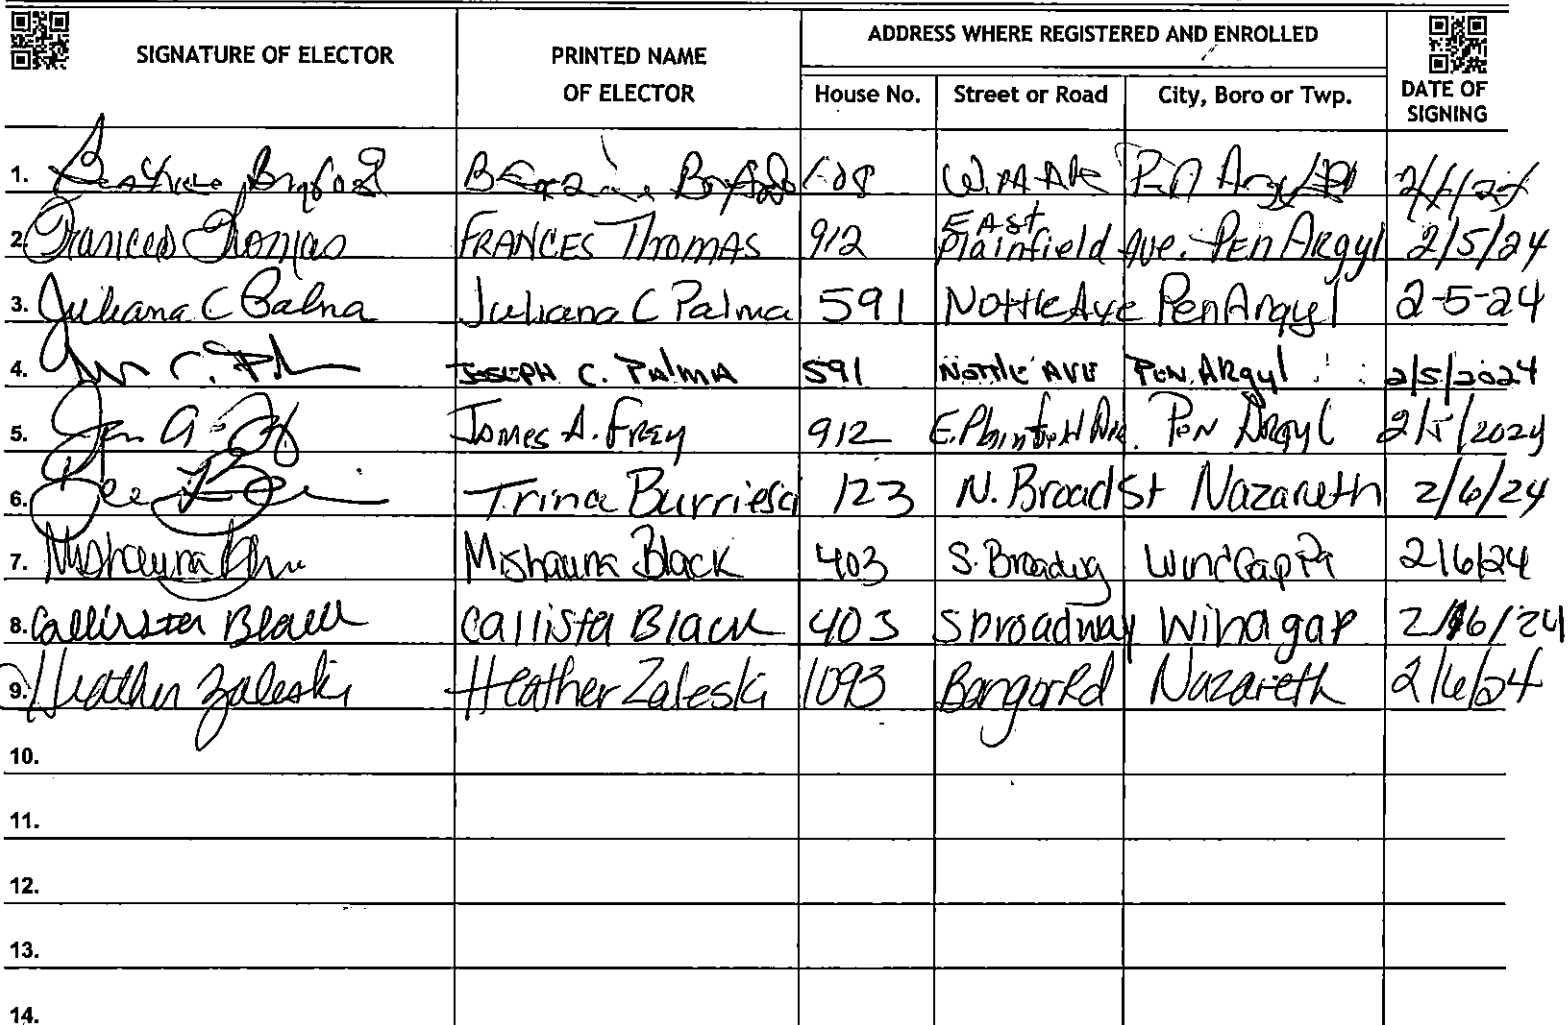 SIGNATURE OF ELECTOR PRINTED NAME OF ELECTOR ADDRESS WHERE REGISTERED AND ENROLLED DATE OF SIGNING
House No. Street or Road City, Boro or Twp.
1. Pen
2. Frances Thomas FRANCES THOMAS 912 EAST Plainfield Ave. PEN ARgyl 2/5/24
3. Juliana C Palma Juliana C Palma 591 Nottle Ave Pen Argyl 2-5-24
4. JOSEPH C. PALMA 591 Nottle AVE PEN ARgyl 2/5/2024
5. James A. Frey 912 E. Plainfield Ave. Pen Argyl 2/5/2024
6. Trina Burriesci 123 N. Broad St Nazareth 2/6/24
7. Mishauna Mishauna Black 403 S. Broadway Wind Gap Pa 2/6/24
8. Callista Black Callista Black 403 S broadway Wind gap 2/6/24
9. Heather Zaleski Heather Zaleski 1093 Bangor Rd Nazareth 2/6/24
10.
11.
12.
13.
14.